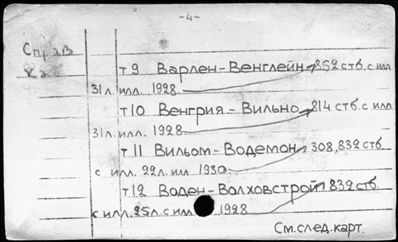 -4-
Справ
т 9 Варлен-Венглейн 852 стб. с илл
31 л. илл. 1928
т 10 Венгрия - Вильно 814 стб. с илл
31 л. илл. 1928
т 11 Вильом-Водемон 308, 832 стб.
с илл. 22 л. илл 1930
т 12 Воден-Волховстрой 832 стб.
с илл. 25 л. с илл 1928
См. след. карт.